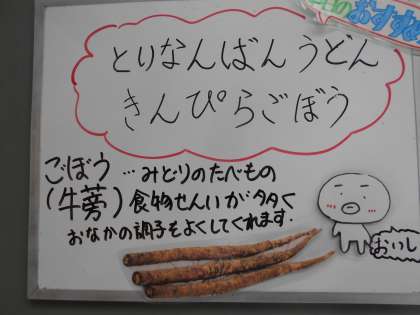 のおすすめ
とりなんばんうどん
きんぴらごぼう
ごぼう…みどりのたべもの
(牛蒡)食物せんいが多く
おなかの調子もよくしてくれます.
おいし